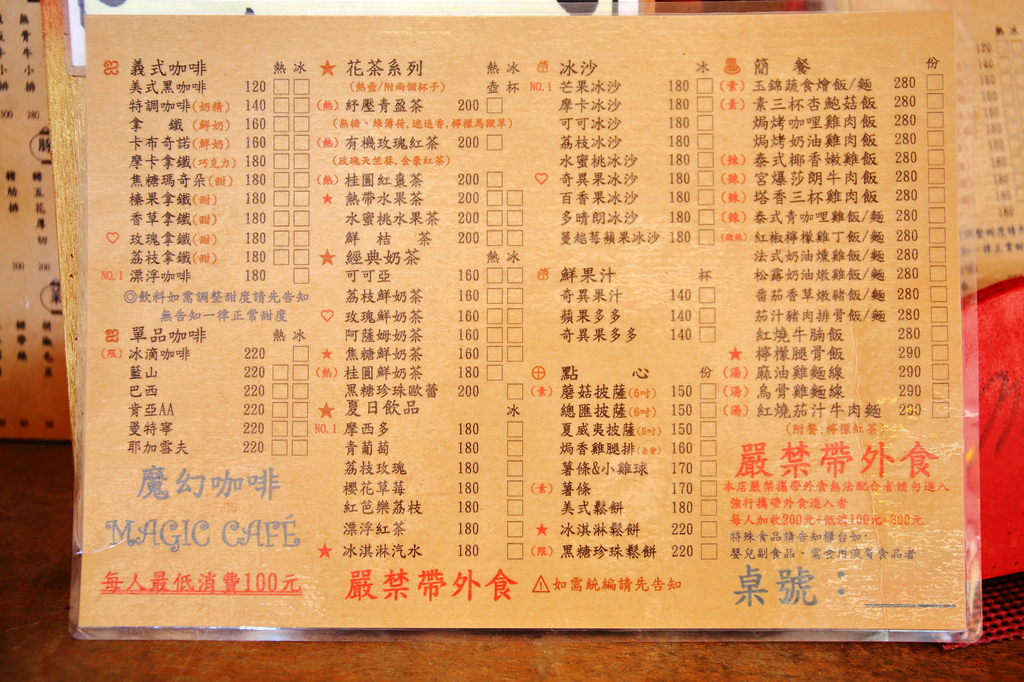 義式咖啡 熱 冰
美式黑咖啡 120
特調咖啡(奶精) 140
拿 鐵(鮮奶) 160
卡布奇諾(鮮奶) 160
摩卡拿鐵(巧克力) 180
焦糖瑪奇朵(甜) 180
榛果拿鐵(甜) 180
香草拿鐵(甜) 180
♡ 玫瑰拿鐵(甜) 180
荔枝拿鐵(甜) 180
NO.1 漂浮咖啡 180
◎飲料如需調整甜度請先告知
無告知一律正常甜度
單品咖啡 熱 冰
(限) 冰滴咖啡 220
藍山 220
巴西 220
肯亞AA 220
曼特寧 220
耶加雪夫 220
魔幻咖啡
MAGIC CAFÉ
每人最低消費100元
★ 花茶系列 熱 冰
(熱壺/附兩個杯子) 壺 杯
(熱) 紓壓青盈茶 200
(無糖、綠薄荷,迷迭香,檸檬馬鞭草)
(熱) 有機玫瑰紅茶 200
(玫瑰天竺葵,金豪紅茶)
(熱) 桂圓紅棗茶 200
★ 熱帶水果茶 200
水蜜桃水果茶 200
鮮 桔 茶 200
★ 經典奶茶 熱 冰
可可亞 160
荔枝鮮奶茶 160
♡ 玫瑰鮮奶茶 160
阿薩姆奶茶 160
★ 焦糖鮮奶茶 160
(熱) 桂圓鮮奶茶 180
黑糖珍珠歐蕾 200
★ 夏日飲品 冰
NO.1 摩西多 180
青葡萄 180
荔枝玫瑰 180
櫻花草莓 180
紅芭樂荔枝 180
漂浮紅茶 180
★ 冰淇淋汽水 180
嚴禁帶外食
冰沙 冰
NO.1 芒果冰沙 180
摩卡冰沙 180
可可冰沙 180
荔枝冰沙 180
水蜜桃冰沙 180
♡ 奇異果冰沙 180
百香果冰沙 180
多晴朗冰沙 180
蔓越莓蘋果冰沙 180
鮮果汁 杯
奇異果汁 140
蘋果多多 140
奇異果多多 140
點 心 份
(素) 蘑菇披薩(6吋) 150
總匯披薩(6吋) 150
夏威夷披薩(6吋) 150
焗香雞腿排 160
薯條&小雞球 170
(素) 薯條 170
美式鬆餅 180
★ 冰淇淋鬆餅 220
(限) 黑糖珍珠鬆餅 220
⚠如需統編請先告知
簡 餐 份
(素) 玉錦蔬食燴飯/麵 280
(素) 素三杯杏鮑菇飯 280
焗烤咖哩雞肉飯 280
焗烤奶油雞肉飯 280
(辣) 泰式椰香嫩雞飯 280
(辣) 宮爆莎朗牛肉飯 280
(辣) 塔香三杯雞肉飯 280
(辣) 泰式青咖哩雞飯/麵 280
(酸辣) 紅椒檸檬雞丁飯/麵 280
法式奶油燻雞飯/麵 280
松露奶油燉雞飯/麵 280
番茄香草嫩豬飯/麵 280
茄汁豬肉排骨飯/麵 280
紅燒牛腩飯 280
★ 檸檬腿骨飯 290
(湯) 麻油雞麵線 290
(湯) 烏骨雞麵線 290
(湯) 紅燒茄汁牛肉麵 290
(附餐:檸檬紅茶)
嚴禁帶外食
本店嚴禁攜帶外食無法配合者請勿進入
強行攜帶外食進入者
每人加收200元+低消100元=300元
特殊食品請告知櫃台如:
嬰兒副食品、需食用流質食品者
桌號: